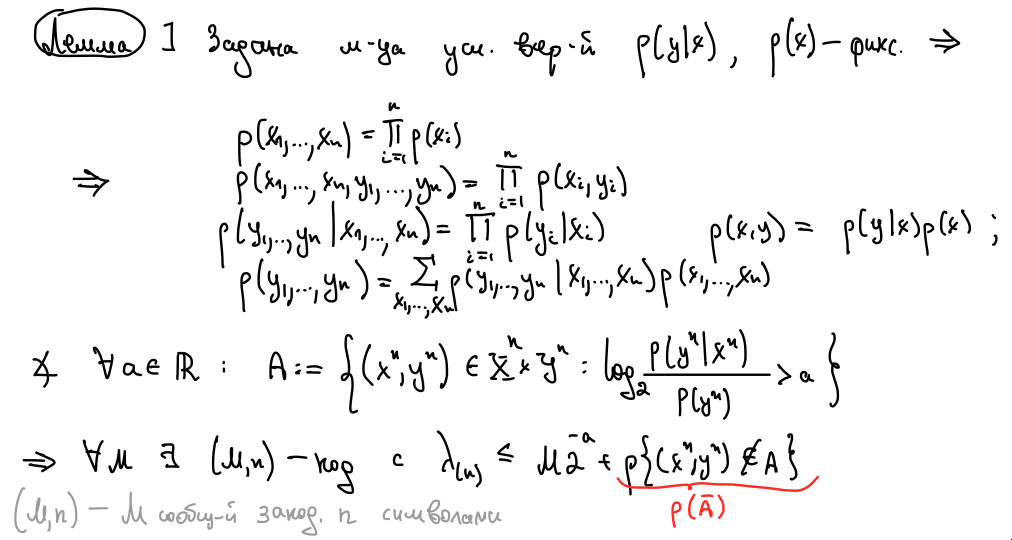 Лемма ] Задана м-ца усл. вер-й p(y|x), p(x) – фикс. ⇒
p(x₁,...,xₙ) = ∏ᵢ₌₁ⁿ p(xᵢ)
⇒ p(x₁,...,xₙ,y₁,...,yₙ) = ∏ᵢ₌₁ⁿ p(xᵢ,yᵢ)
p(y₁,...,yₙ|x₁,...,xₙ) = ∏ᵢ₌₁ⁿ p(yᵢ|xᵢ) p(x,y) = p(y|x)p(x) ;
p(y₁,...,yₙ) = ∑_{x₁,...,xₙ} p(y₁,...,yₙ|x₁,...,xₙ) p(x₁,...,xₙ)
∀a∈ℝ : A := {(xⁿ,yⁿ) ∈ Xⁿ × Yⁿ : log₂ p(yⁿ|xⁿ)/p(yⁿ) > a}
⇒ ∀M ∃ (M,n) – код с λ₍ₙ₎ ≤ M2⁻ᵃ + p{(xⁿ,yⁿ) ∉ A}
(M,n) – M сообщ-й закод. n символами p(Ā)